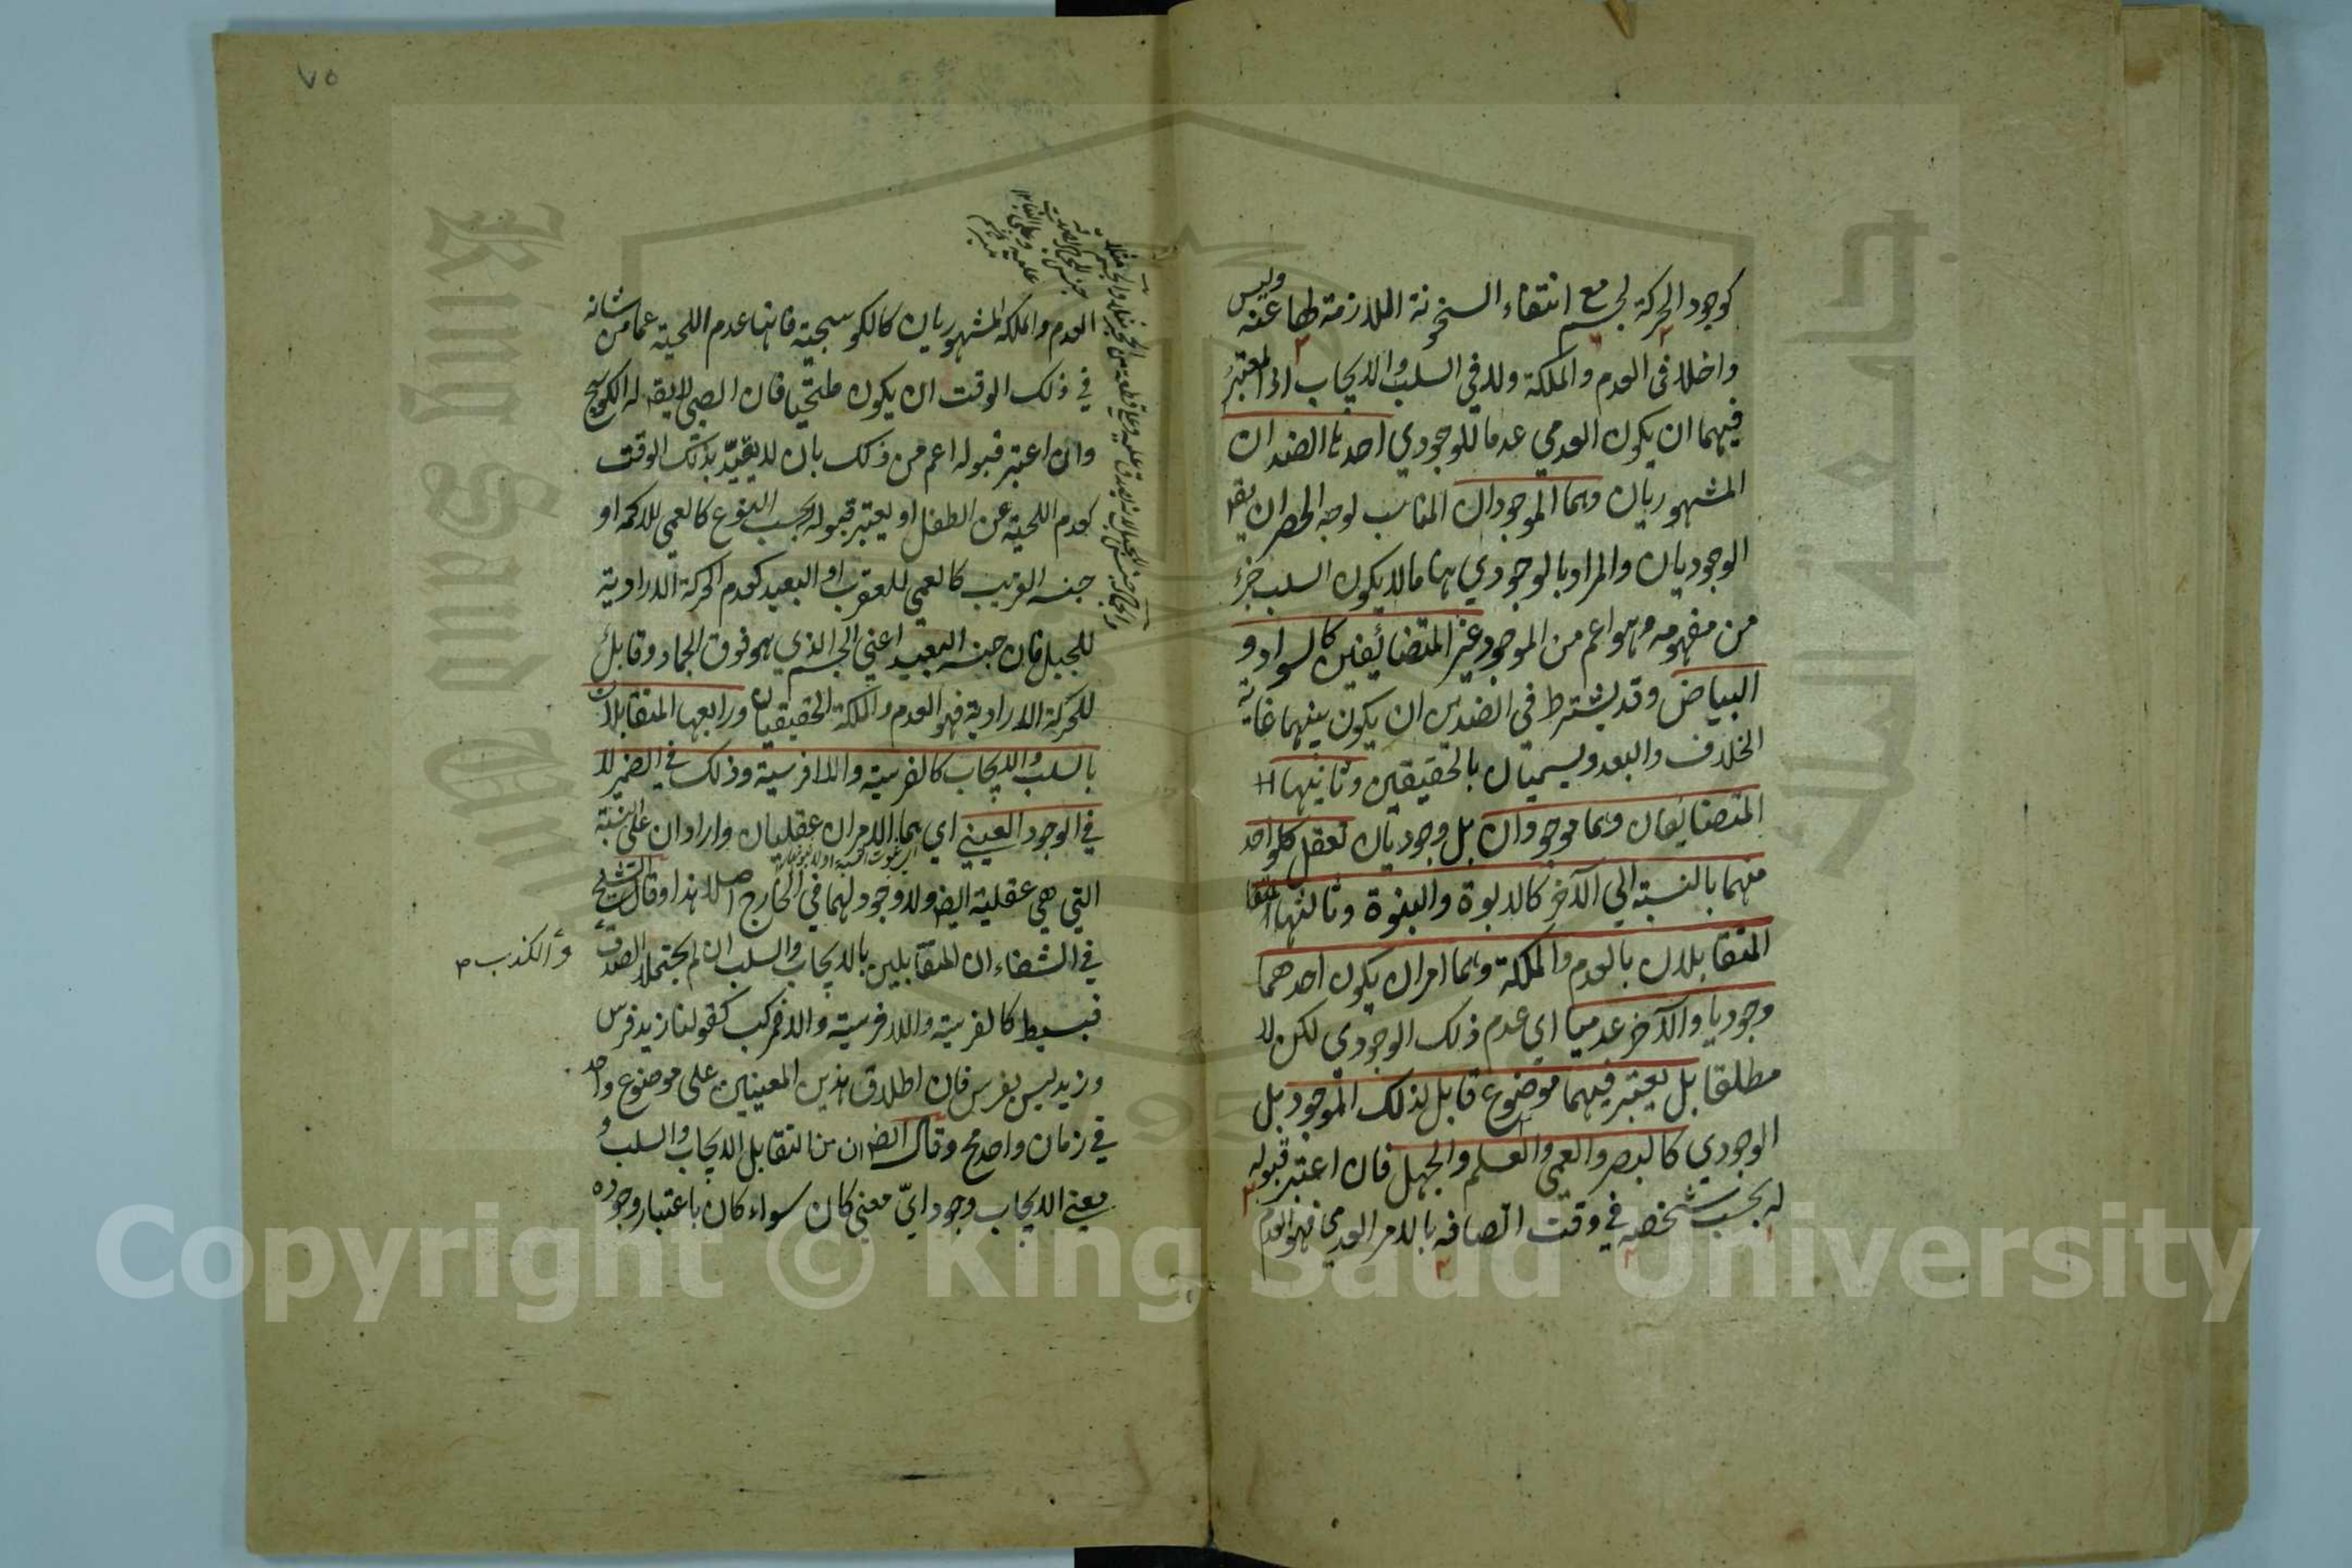 كوجود الحركة لجسم مع انتفاء السخونة اللازمة لها عنه وليس
داخلا في العدم والملكة ولا في السلب والايجاب اذ المعتبر
فيهما ان يكون العدمي عدما للوجودي احدها الضدان
المشهوريان وهما الموجودان المناسب لوجه الحصر ان يقا
الوجوديان والمراد بالوجودي ههنا ما لا يكون السلب جزء
من مفهومه وهو اعم من الموجود غير المتضائفين كالسواد و
البياض وقد يشترط في الضدين ان يكون بينهما غاية
الخلاف والبعد ويسميان بالحقيقين وثانيها
المتضائفان وهما موجودان بل وجوديان تعقل كل واحد
منهما بالنسبة الي الآخر كالابوة والبنوة وثالثها
المتقابلان بالعدم والملكة وهما امران يكون احدهما
وجوديا والآخر عدميا اي عدم ذلك الوجودي لكن لا
مطلقا بل يعتبر فيهما موضوع قابل لذلك الموجود بل
الوجودي كالبصر والعمي والعلم والجهل فان اعتبر قبوله
له بحسب شخصه في وقت اتصافه بالامر العدمي فهو العدم
٧٥
العدم والملكة المشهوريان كالكوسجية فانها عدم اللحية عما من شانه
في ذلك الوقت ان يكون ملتحيا فان الصبي لا يقا له الكوسج
وان اعتبر قبوله اعم من ذلك بان لا يقيد بذلك الوقت
كعدم اللحية عن الطفل او يعتبر قبوله بحسب النوع كالعمي للاكمه او
جنسه القريب كالعمي للعقرب او البعيد كعدم الحركة الارادية
للجبل فان جنسه البعيد اعني الجسم الذي هو فوق الجماد وقابل
للحركة الارادية فهو العدم والملكة الحقيقيان ورابعها المتقابلان
بالسلب والايجاب كالفرسية واللافرسية وذلك في الضمير لا
في الوجود العيني اي هما الامران عقليان واردان علي النسبة
التي هي عقلية ايضا ولا وجود لهما في الخارج اصلا هذا وقال الشيخ
في الشفاء ان المتقابلين بالايجاب والسلب ان لم يحتملا الصدق
والكذب
فبسيط كالفرسية واللافرسية والا فمركب كقولنا زيد فرس
وزيد ليس بفرس فان اطلاق هذين المعنيين علي موضوع واحد
في زمان واحد مح وقال ايضا ان من التقابل الايجاب والسلب و
معني الايجاب وجود ايّ معني كان سواء كان باعتبار وجوده
Copyright © King Saud University